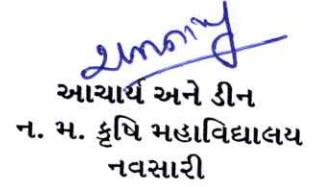 આચાર્ય અને ડીન
ન. મ. કૃષિ મહાવિદ્યાલય
નવસારી